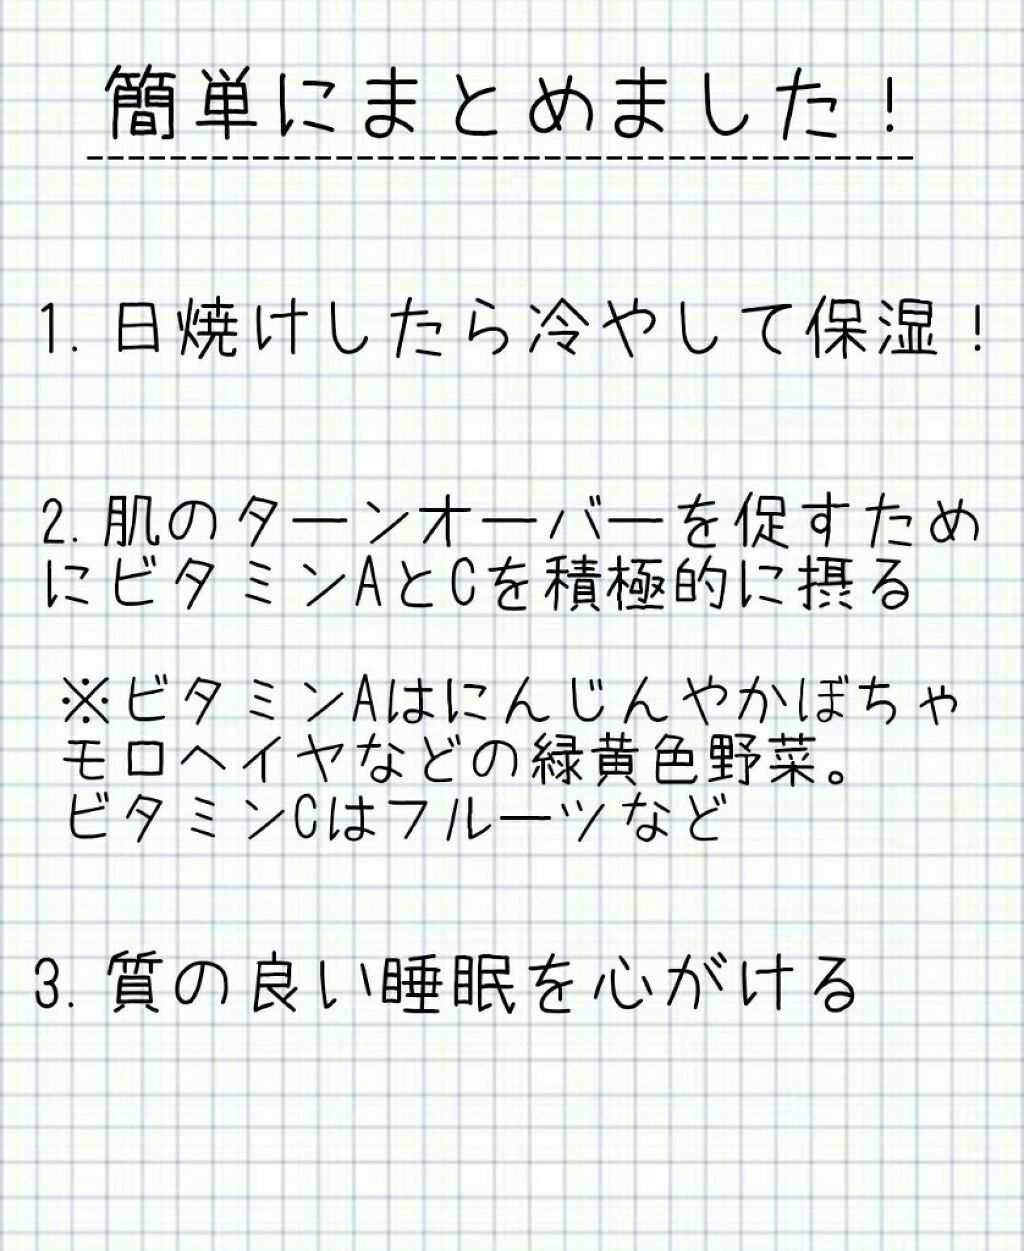 簡単にまとめました！
1. 日焼けしたら冷やして保湿！
2. 肌のターンオーバーを促すため
にビタミンAとCを積極的に摂る
※ビタミンAはにんじんやかぼちゃ
モロヘイヤなどの緑黄色野菜。
ビタミンCはフルーツなど
3. 質の良い睡眠を心がける